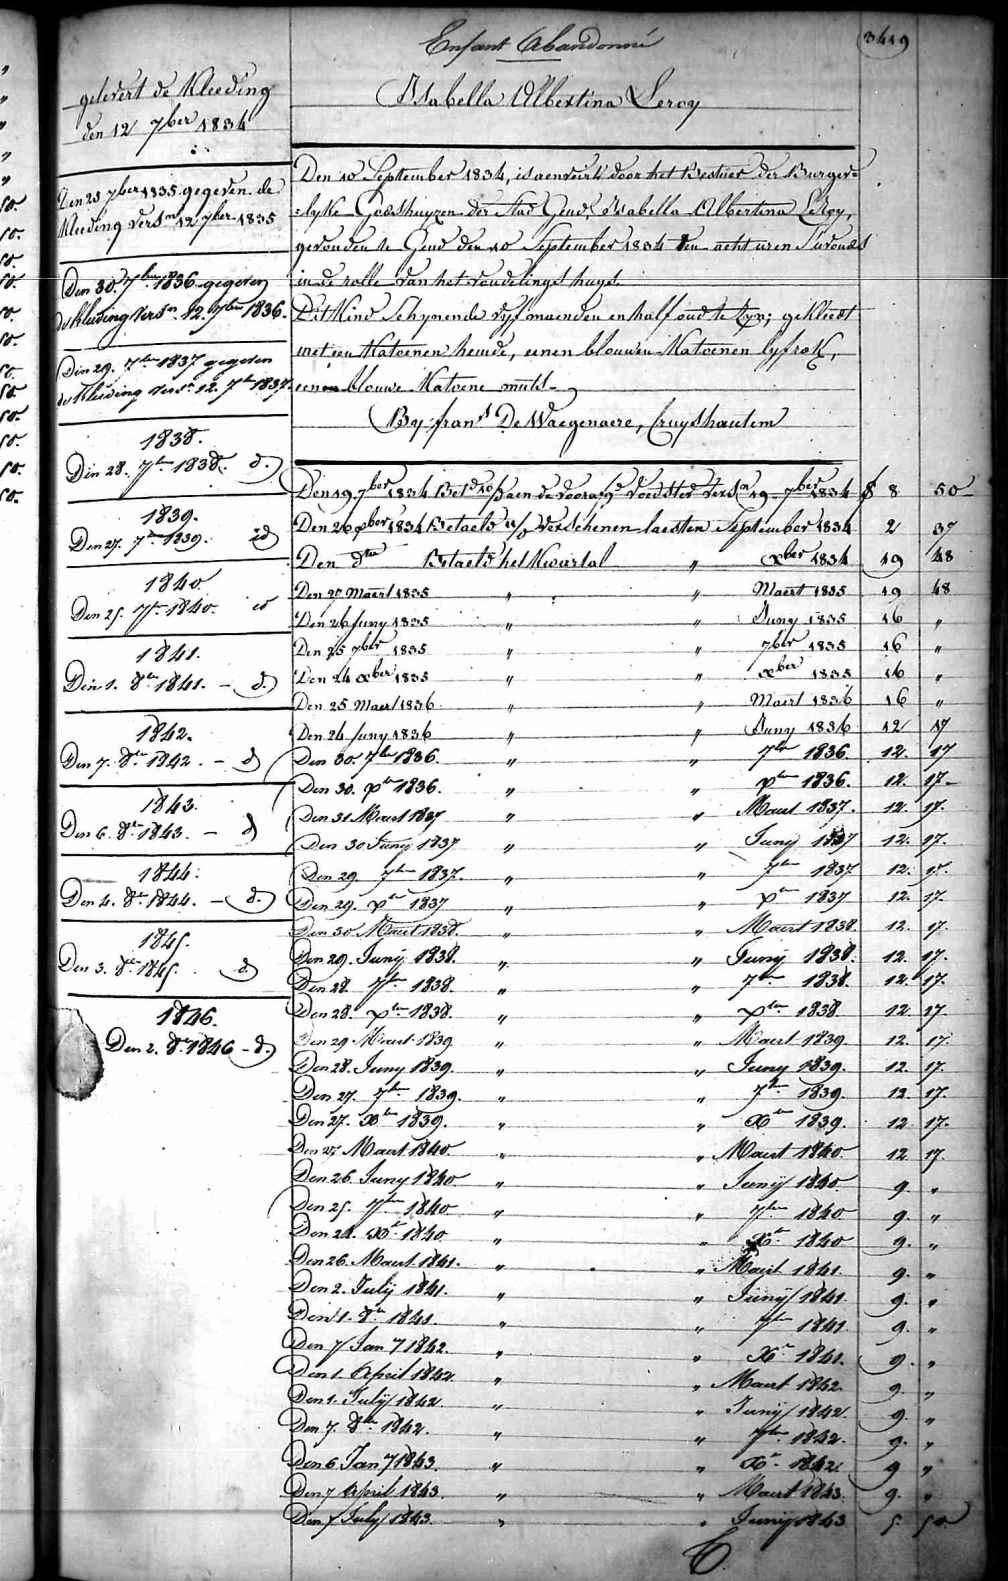 Enfant Abandonné
3419
Isabella Albertina Leroy
gelevert de Kleeding
den 12 7ber 1834
Den 25 7ber 1835 gegeven de
Kleeding versn 12 7ber 1835
Den 30. 7ber 1836 gegeven
de kleeding versn. 12. 7ber 1836.
Den 29. 7ber 1837 gegeven
de kleeding versn 12. 7ber 1837.
1838.
Den 28. 7ber 1838. d.
1839.
Den 27. 7ber 1839. id
1840
Den 25. 7ber 1840.
1841.
Den 1. 8ber 1841. - d.
1842.
Den 7. 8ber 1842. - d
1843.
Den 6. 8ber 1843. - d
1844.
Den 4. 8ber 1844. - d.
1845.
Den 3. 8ber 1845. d
1846.
Den 2. 8ber 1846 - d.
Den 10 September 1834, is aenveird door het Bestuer der Burger=
=lyke Godshuyzen der Stad Gend, Isabella Albertina LeRoy,
gevonden te Gend den 10 September 1834 ten acht uren 's avonds
in de rolle van het vondelings huys.
Dit Kind schynende vyf maenden en half oud te zyn; gekleed
met een Katoenen hemde, eenen blouwen Katoenen lyfrok,
eenen blouwe Katoene muts
By frans De Waegenaere, Cruyshautem
Den 19 7ber 1834 Betd aen de voorsz. voedster versn 19 7ber 1834 8 50
Den 20 xber 1834 Betaeld verschenen laesten September 1834 2 37
Den dto Betaeld het Kwartal " xber 1834 19 48
Den 27 Maert 1835 " " Maert 1835 19 48
Den 26 Juny 1835 " " Juny 1835 16 "
Den 25 7ber 1835 " " 7ber 1835 16 "
Den 24 xber 1835 " " xber 1835 16 "
Den 25 Maert 1836 " " Maert 1836 16 "
Den 24 Juny 1836 " " Juny 1836 12 17
Den 30 7ber 1836. " " 7ber 1836. 12. 17
Den 30. xber 1836. " " xber 1836. 12. 17-
Den 31 Maert 1837 " " Maert 1837. 12. 17.
Den 30 Juny 1837 " " Juny 1837 12. 17.
Den 29. 7ber 1837. " " 7ber 1837 12. 17.
Den 29. xber 1837 " " xber 1837 12. 17.
Den 30 Maert 1838. " " Maert 1838. 12. 17.
Den 29. Junij 1838. " " Junij 1838. 12. 17.
Den 28. 7ber 1838. " " 7ber 1838. 12. 17.
Den 28. xber 1838. " " xber 1838. 12. 17.
Den 29 Maert 1839 " " Maert 1839. 12. 17.
Den 28. Juny 1839. " " Juny 1839. 12. 17.
Den 27. 7ber 1839. " " 7ber 1839. 12. 17.
Den 27. Xber 1839. " " Xber 1839. 12 17.
Den 27. Maert 1840. " " Maert 1840. 12 17.
Den 26. Juny 1840 " " Junij 1840. 9. "
Den 25. 7ber 1840 " " 7ber 1840 9. "
Den 24. Xber 1840 " " Xber 1840 9. "
Den 26. Maert 1841. " " Maert 1841. 9. "
Den 2. Julij 1841. " " Junij 1841 9. "
Den 1. 8ber 1841. " " 7ber 1841 9. "
Den 7 Jan 7 1842. " " Xber 1841. 9. "
Den 1. April 1842. " " Maert 1842. 9. "
Den 1. Julij 1842 " " Junij 1842. 9. "
Den 7. 8ber 1842. " " 7ber 1842. 9. "
Den 6 Jan 7 1843. " " Xber 1842. 9 "
Den 7 April 1843. " " Maert 1843. 9. "
Den 7 July 1843. " " Junij 1843 5. 50